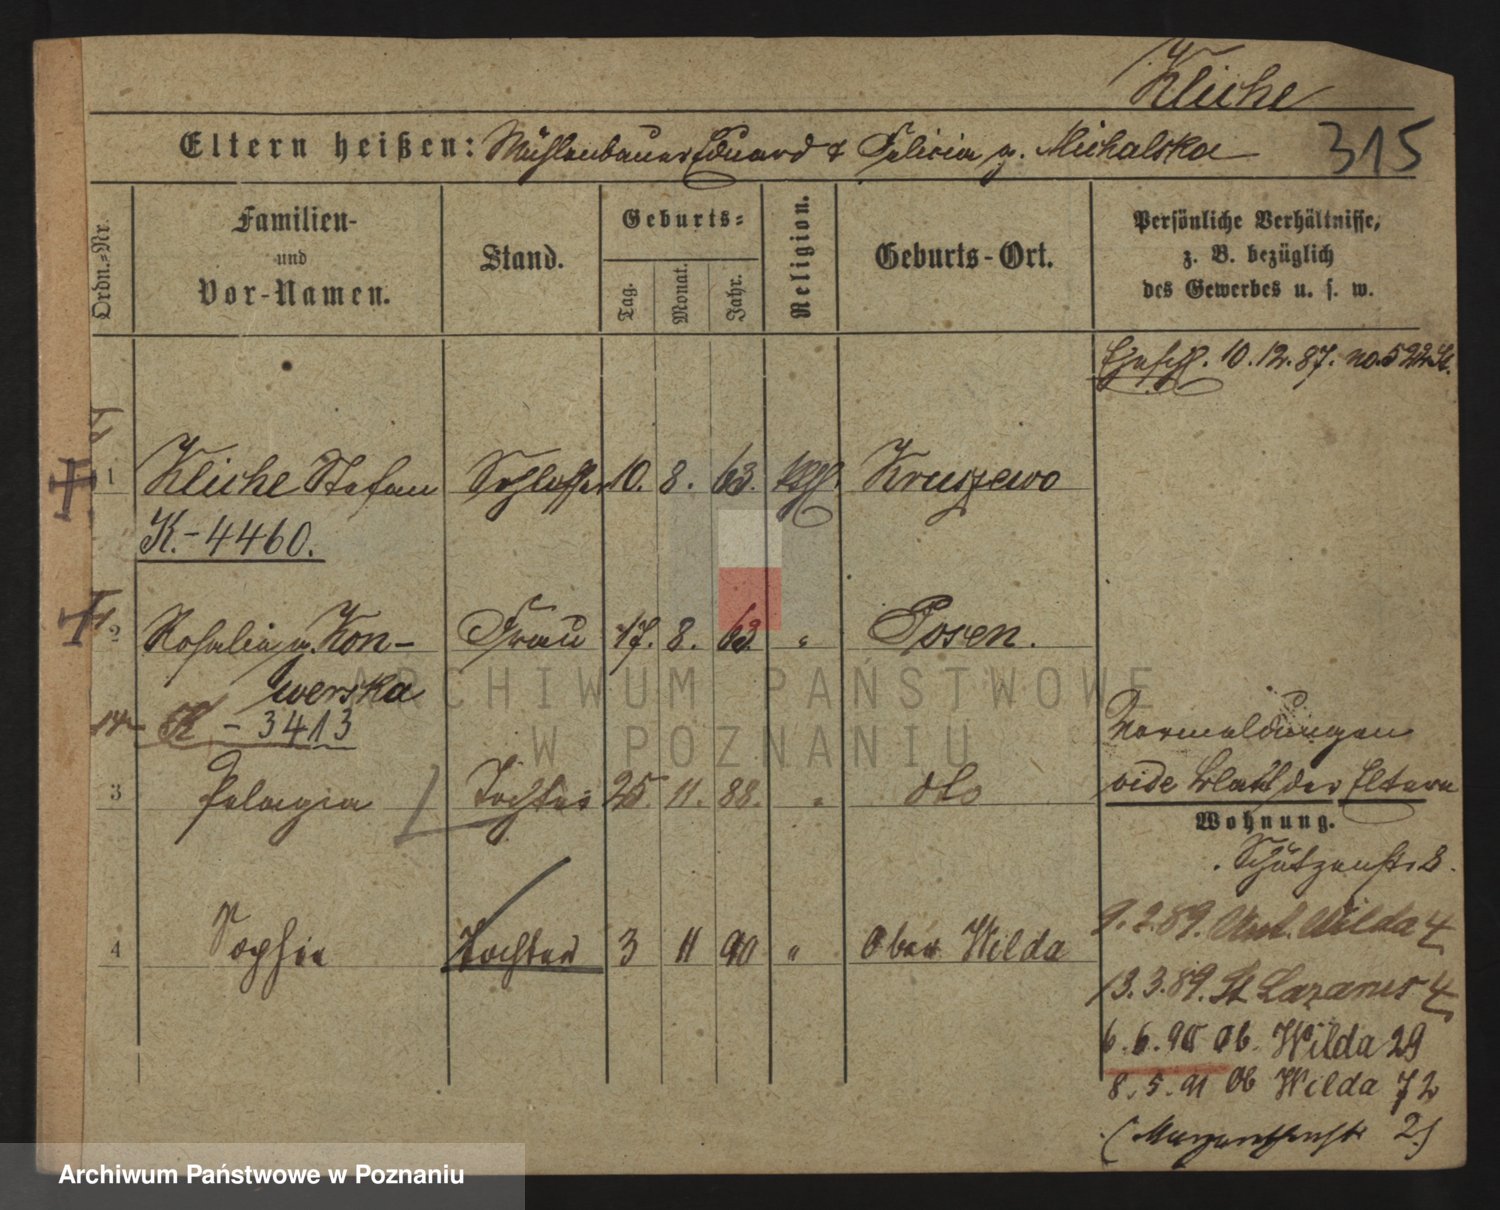 Kliche
Eltern heißen: Mühlenbauer Eduard & Felicia g. Michalska
315
Ordn.-Nr.
Familien- und Vor-Namen.
Stand.
Geburts-
Tag.
Monat.
Jahr.
Religion.
Geburts-Ort.
Persönliche Verhältnisse,
z. B. bezüglich
des Gewerbes u. s. w.
10.12.87. no. 522
1 Kliche Stefan Schlosser 10. 8. 63. kath. Kruszewo
K.-4460.
2 Rosalia g. Kon- Frau 17. 8. 63. " Posen.
werska
K-3413
Vermeldungen
3 Pelagia Tochter 25. 11. 88. " dto
vide Blatt der Eltern
Wohnung.
Schützenstr. 8.
4 Sophie Tochter 3 11 90 " Ober Wilda
9.2.89. Unt. Wilda 4
13.3.89. St Lazarus 4
6.6.90 Ob. Wilda 29
8.5.91 Ob Wilda 72
( 2)
ARCHIWUM PAŃSTWOWE
W POZNANIU
Archiwum Państwowe w Poznaniu